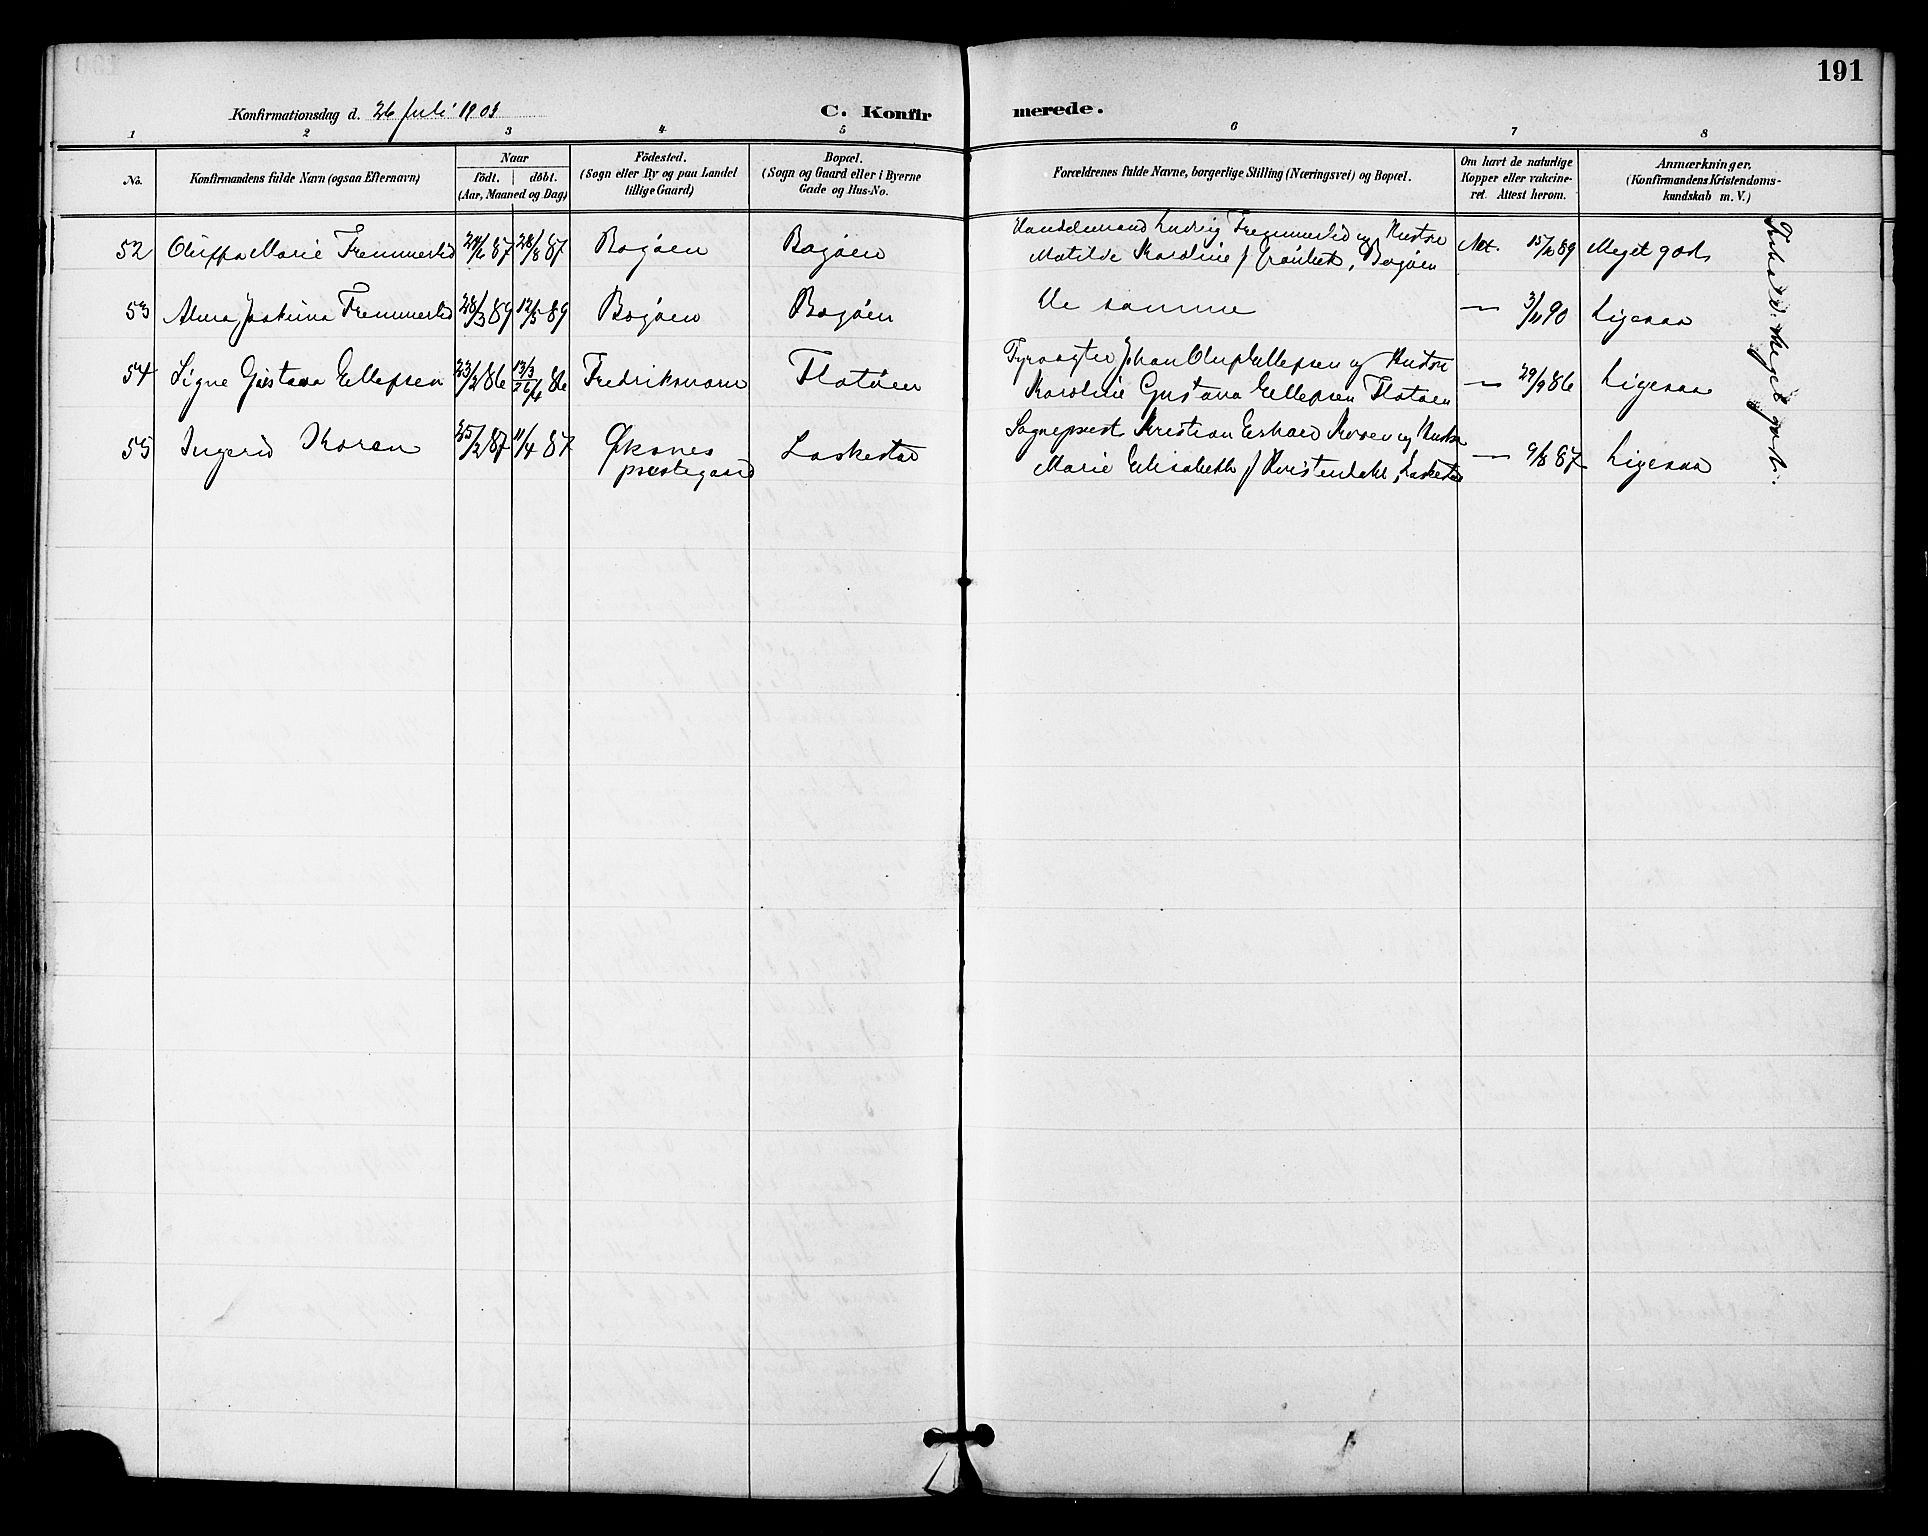 191
Konfirmationsdag d. 26 Juli 1903
C. Konfirmerede.
1 2 3 4 5 6 7 8
No.
Konfirmandens fulde Navn (ogsaa Efternavn)
Naar
födt. döbt.
(Aar, Maaned og Dag)
Födested.
(Sogn eller By og paa Landet
tillige Gaard)
Bopæl.
(Sogn og Gaard eller i Byerne
Gade og Hus-No.
Forældrenes fulde Navne, borgerlige Stilling (Næringsvei) og Bopæl.
Om havt de naturlige
Kopper eller vakcine-
ret. Attest herom.
Anmærkninger.
(Konfirmandens Kristendoms-
kundskab m. V.)
52 Oluffa Marie Fremmerlid 24/6 87 28/8 87 Bogøen Bogøen Handelsmand Ludvig Fremmerlid og Hustru
Matilde Karoline f Grønbek, Bogøen Att. 15/6 89 Meget godt
53 Alma Joakima Fremmerlid 28/3 89 12/5 89 Bogøen Bogøen De samme — 3/11 90 Ligesaa
54 Signe Gustava Ellefsen 23/2 86 13/3 26/4 86 Fredriksvarn Flatøen Fyrvogter Johan Oluf Ellefsen og Hustru
Karoline Gustava Ellefsen Flatøen — 29/9 86 Ligesaa
55 Ingerid Koren 25/2 87 11/4 87 Øksnes
prestegaard Laskestad Sogneprest Kristian Erhard Koren og Hustru
Marie Elisabeth f Kristendahl, Laskestad — 9/8 87 Ligesaa
Forhold: Meget godt.